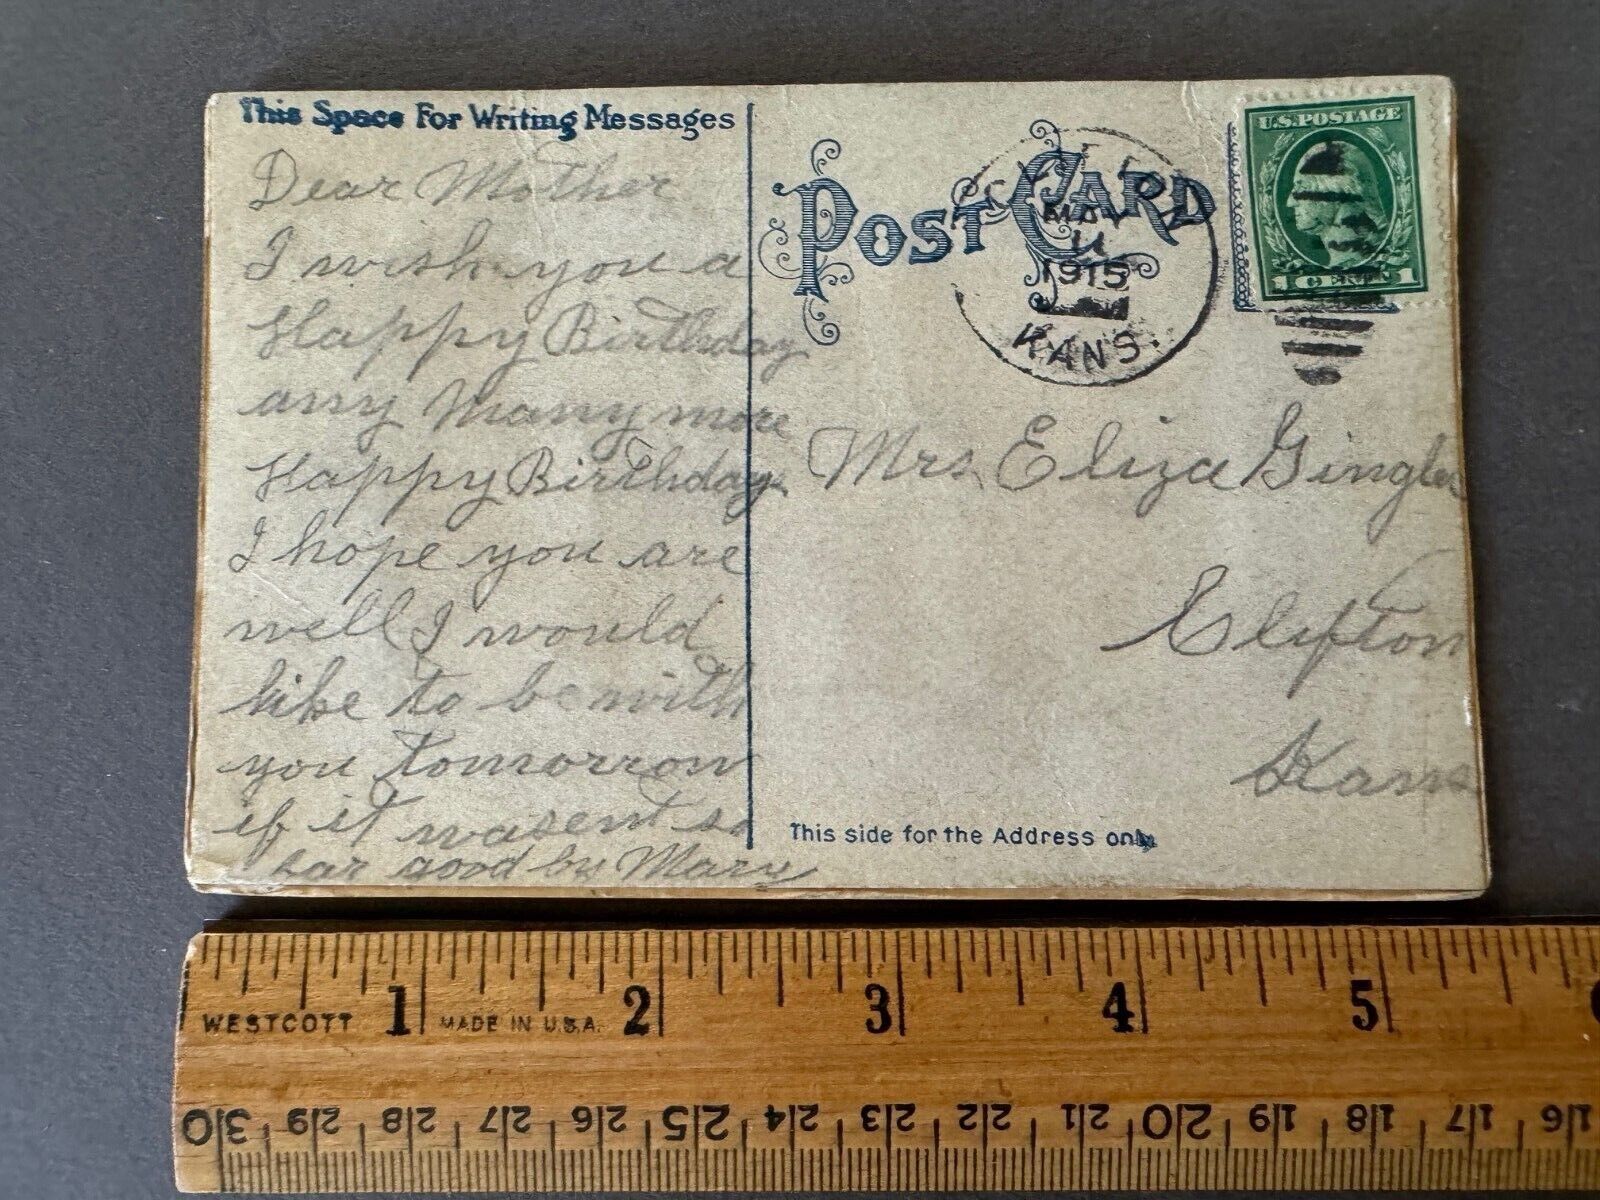 This Space For Writing Messages
Dear Mother
I wish you a
Happy Birthday
any Many more
Happy Birthdays
I hope you are
well I would
like to be with
you tomorrow
if it wasent so
far good by Mary
POST CARD
MAY
11
1915
KANS.
U.S. POSTAGE
1 CENT 1
Mrs Eliza Gingler
Clifton
Kans
This side for the Address only
1 2 3 4 5 6
WESTCOTT MADE IN U.S.A.
30 29 28 27 26 25 24 23 22 21 20 19 18 17 16